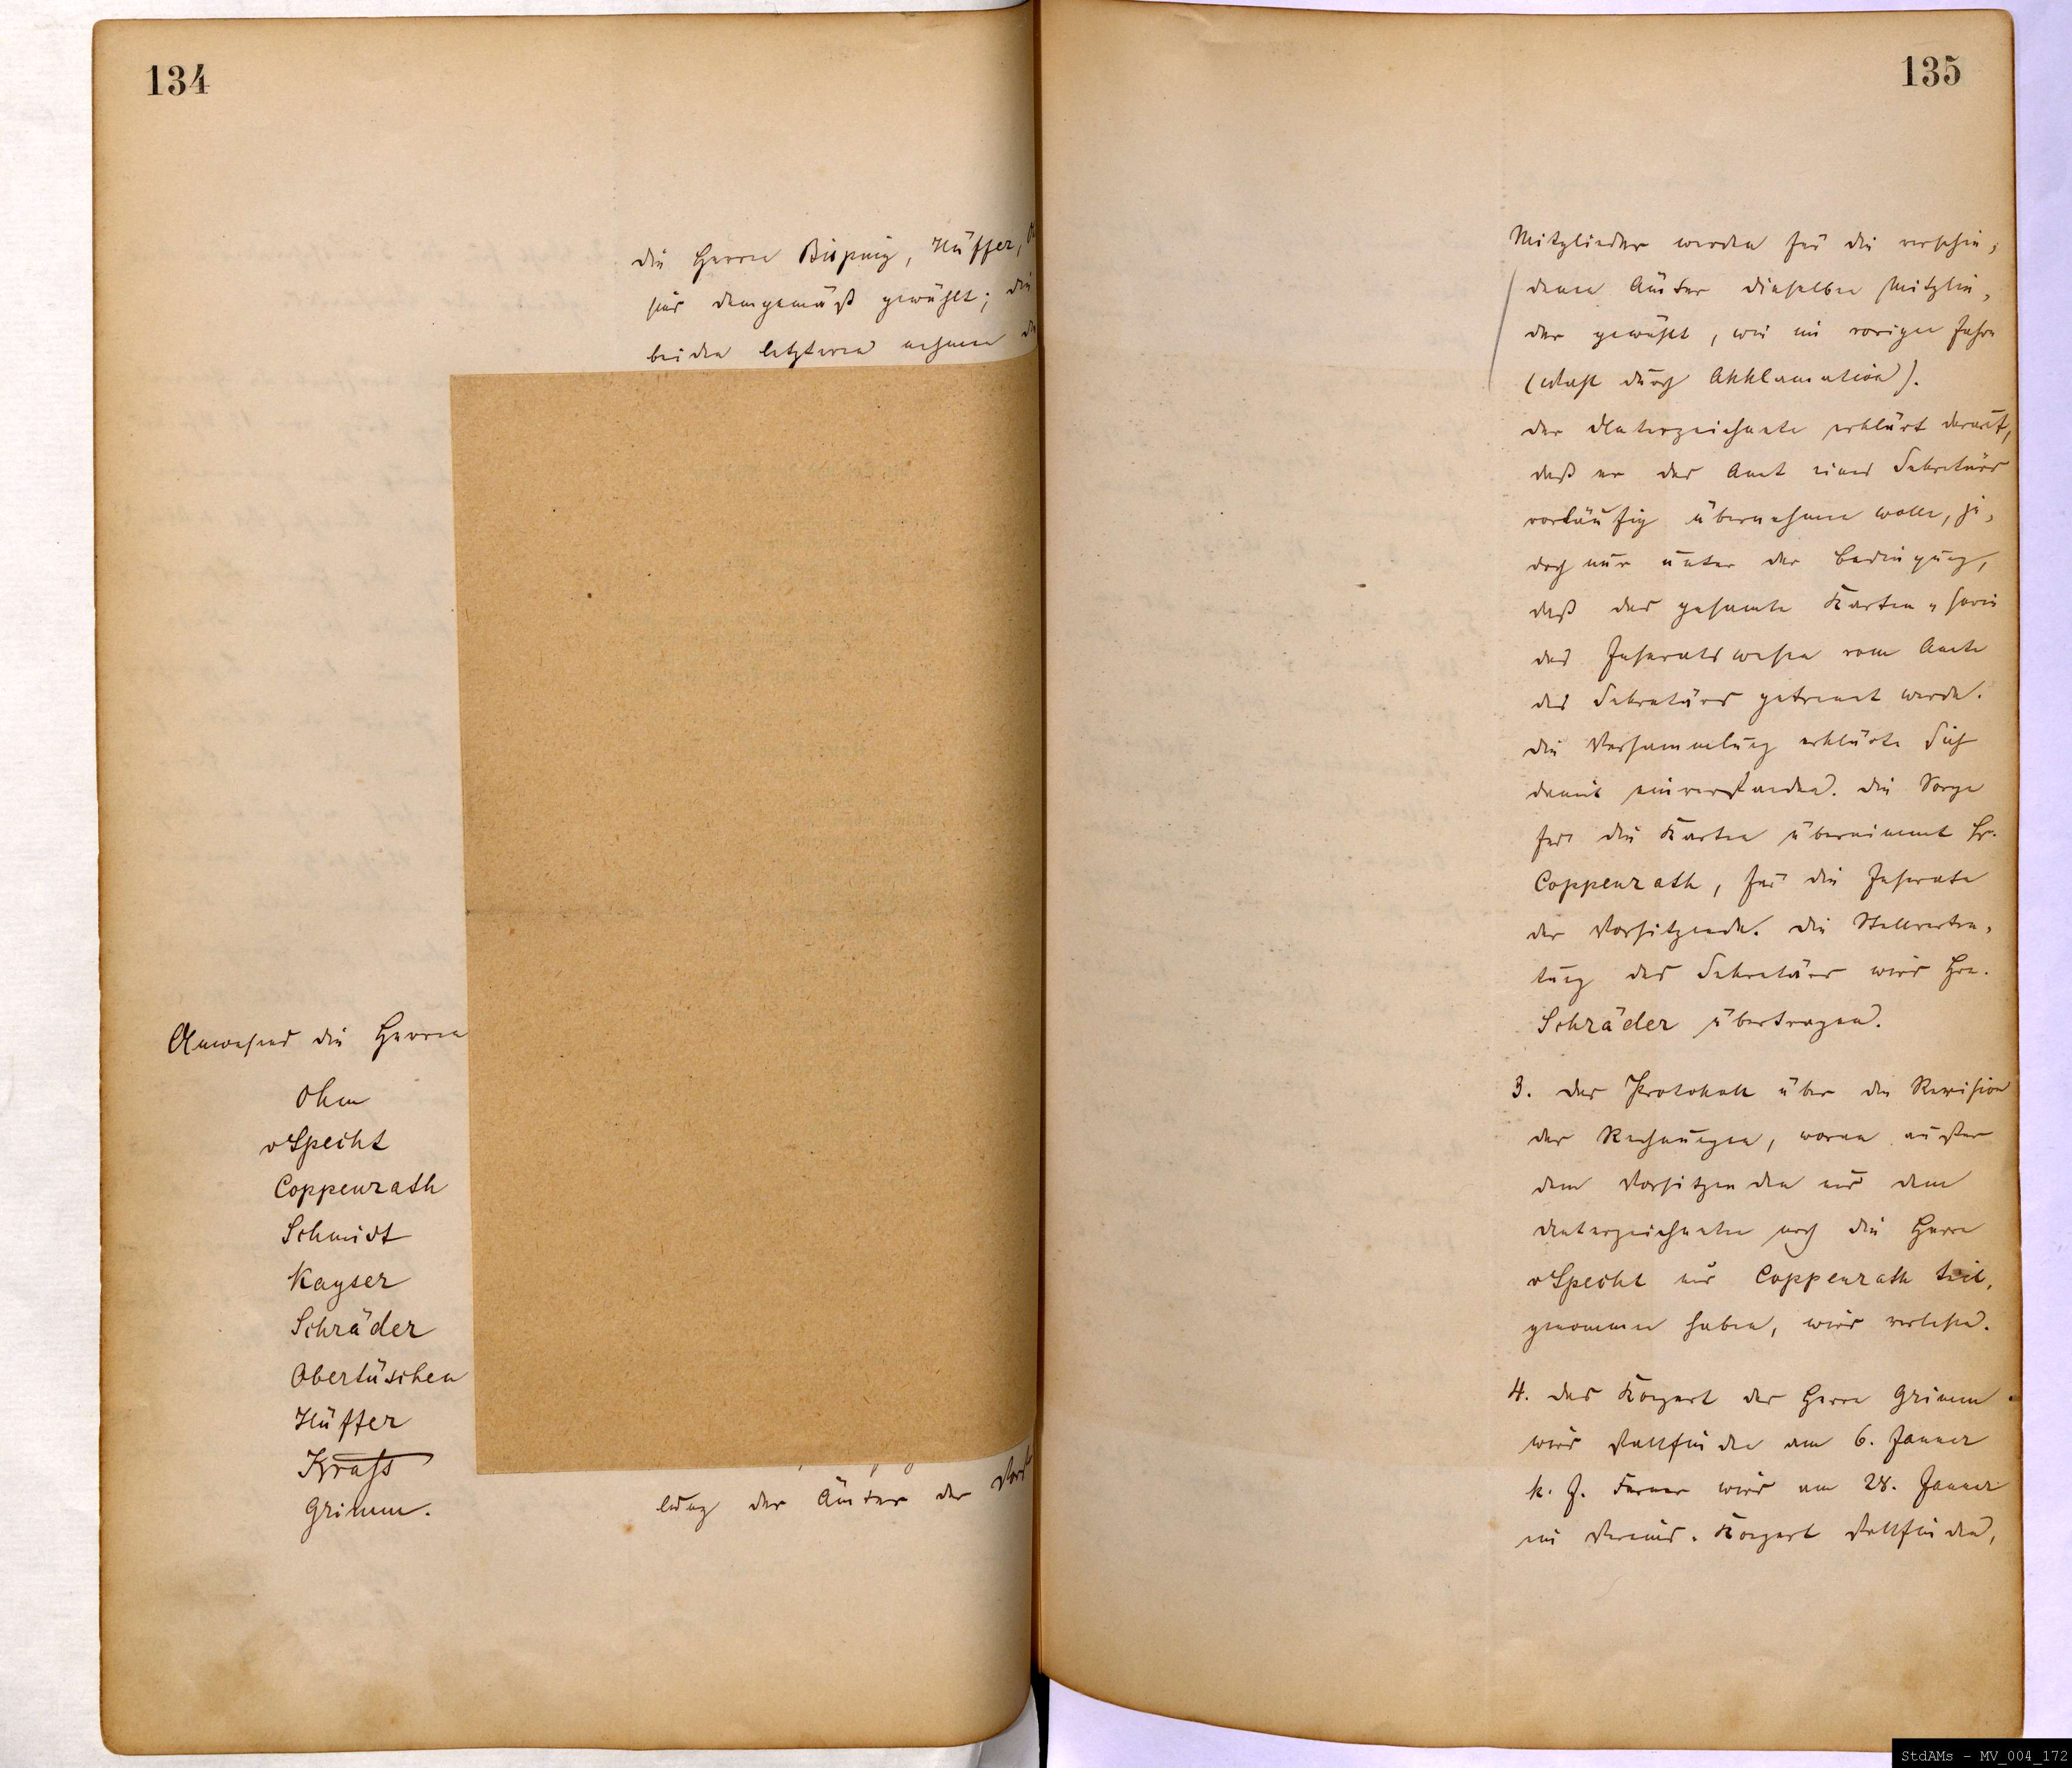 134
die Herren Bisping, Hüffer,
sind demgemäß gewählt; die
beiden letzteren nehmen
Anwesend die Herren
Ohm
v Specht
Coppenrath
Schmidt
Kayser
Schräder
Obertüschen
Hüffer
Krass
Grimm.
lung der Ämter der
135
Mitglieder werden für die verschie-
denen Ämter dieselben Mitglie-
der gewählt, wie im vorigen Jahre
(Wahl durch Akklamation).
Der Unterzeichnete erklärt darauf,
daß er das Amt eines Sekretärs
vorläufig übernehmen wolle, je-
doch nur unter der Bedingung,
daß das gesamte Karten- sowie
das Inseratswesen vom Amte
des Sekretärs getrennt werde.
Die Versammlung erklärte sich
damit einverstanden. Die Sorge
für die Karten übernimmt Hr.
Coppenrath, für die Inserate
der Vorsitzende. Die Stellvertre-
tung des Sekretärs wird Hrn.
Schräder übertragen.
3. Das Protokoll über die Revision
der Rechnungen, woran außer
dem Vorsitzenden und dem
Unterzeichneten noch die Herren
v Specht und Coppenrath teil-
genommen haben, wird verlesen.
4. Das Konzert des Herrn Grimm
wird stattfinden am 6. Januar
k. J. Ferner wird am 28. Januar
ein Vereins-Konzert stattfinden,
StdAMs - MV_004_172